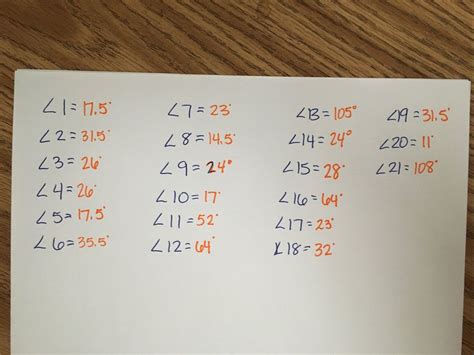 ∠1 = 17.5°
∠2 = 31.5°
∠3 = 26°
∠4 = 26°
∠5 = 17.5°
∠6 = 35.5°
∠7 = 23°
∠8 = 14.5°
∠9 = 24°
∠10 = 17°
∠11 = 52°
∠12 = 64°
∠13 = 105°
∠14 = 24°
∠15 = 28°
∠16 = 64°
∠17 = 23°
∠18 = 32°
∠19 = 31.5°
∠20 = 11°
∠21 = 108°